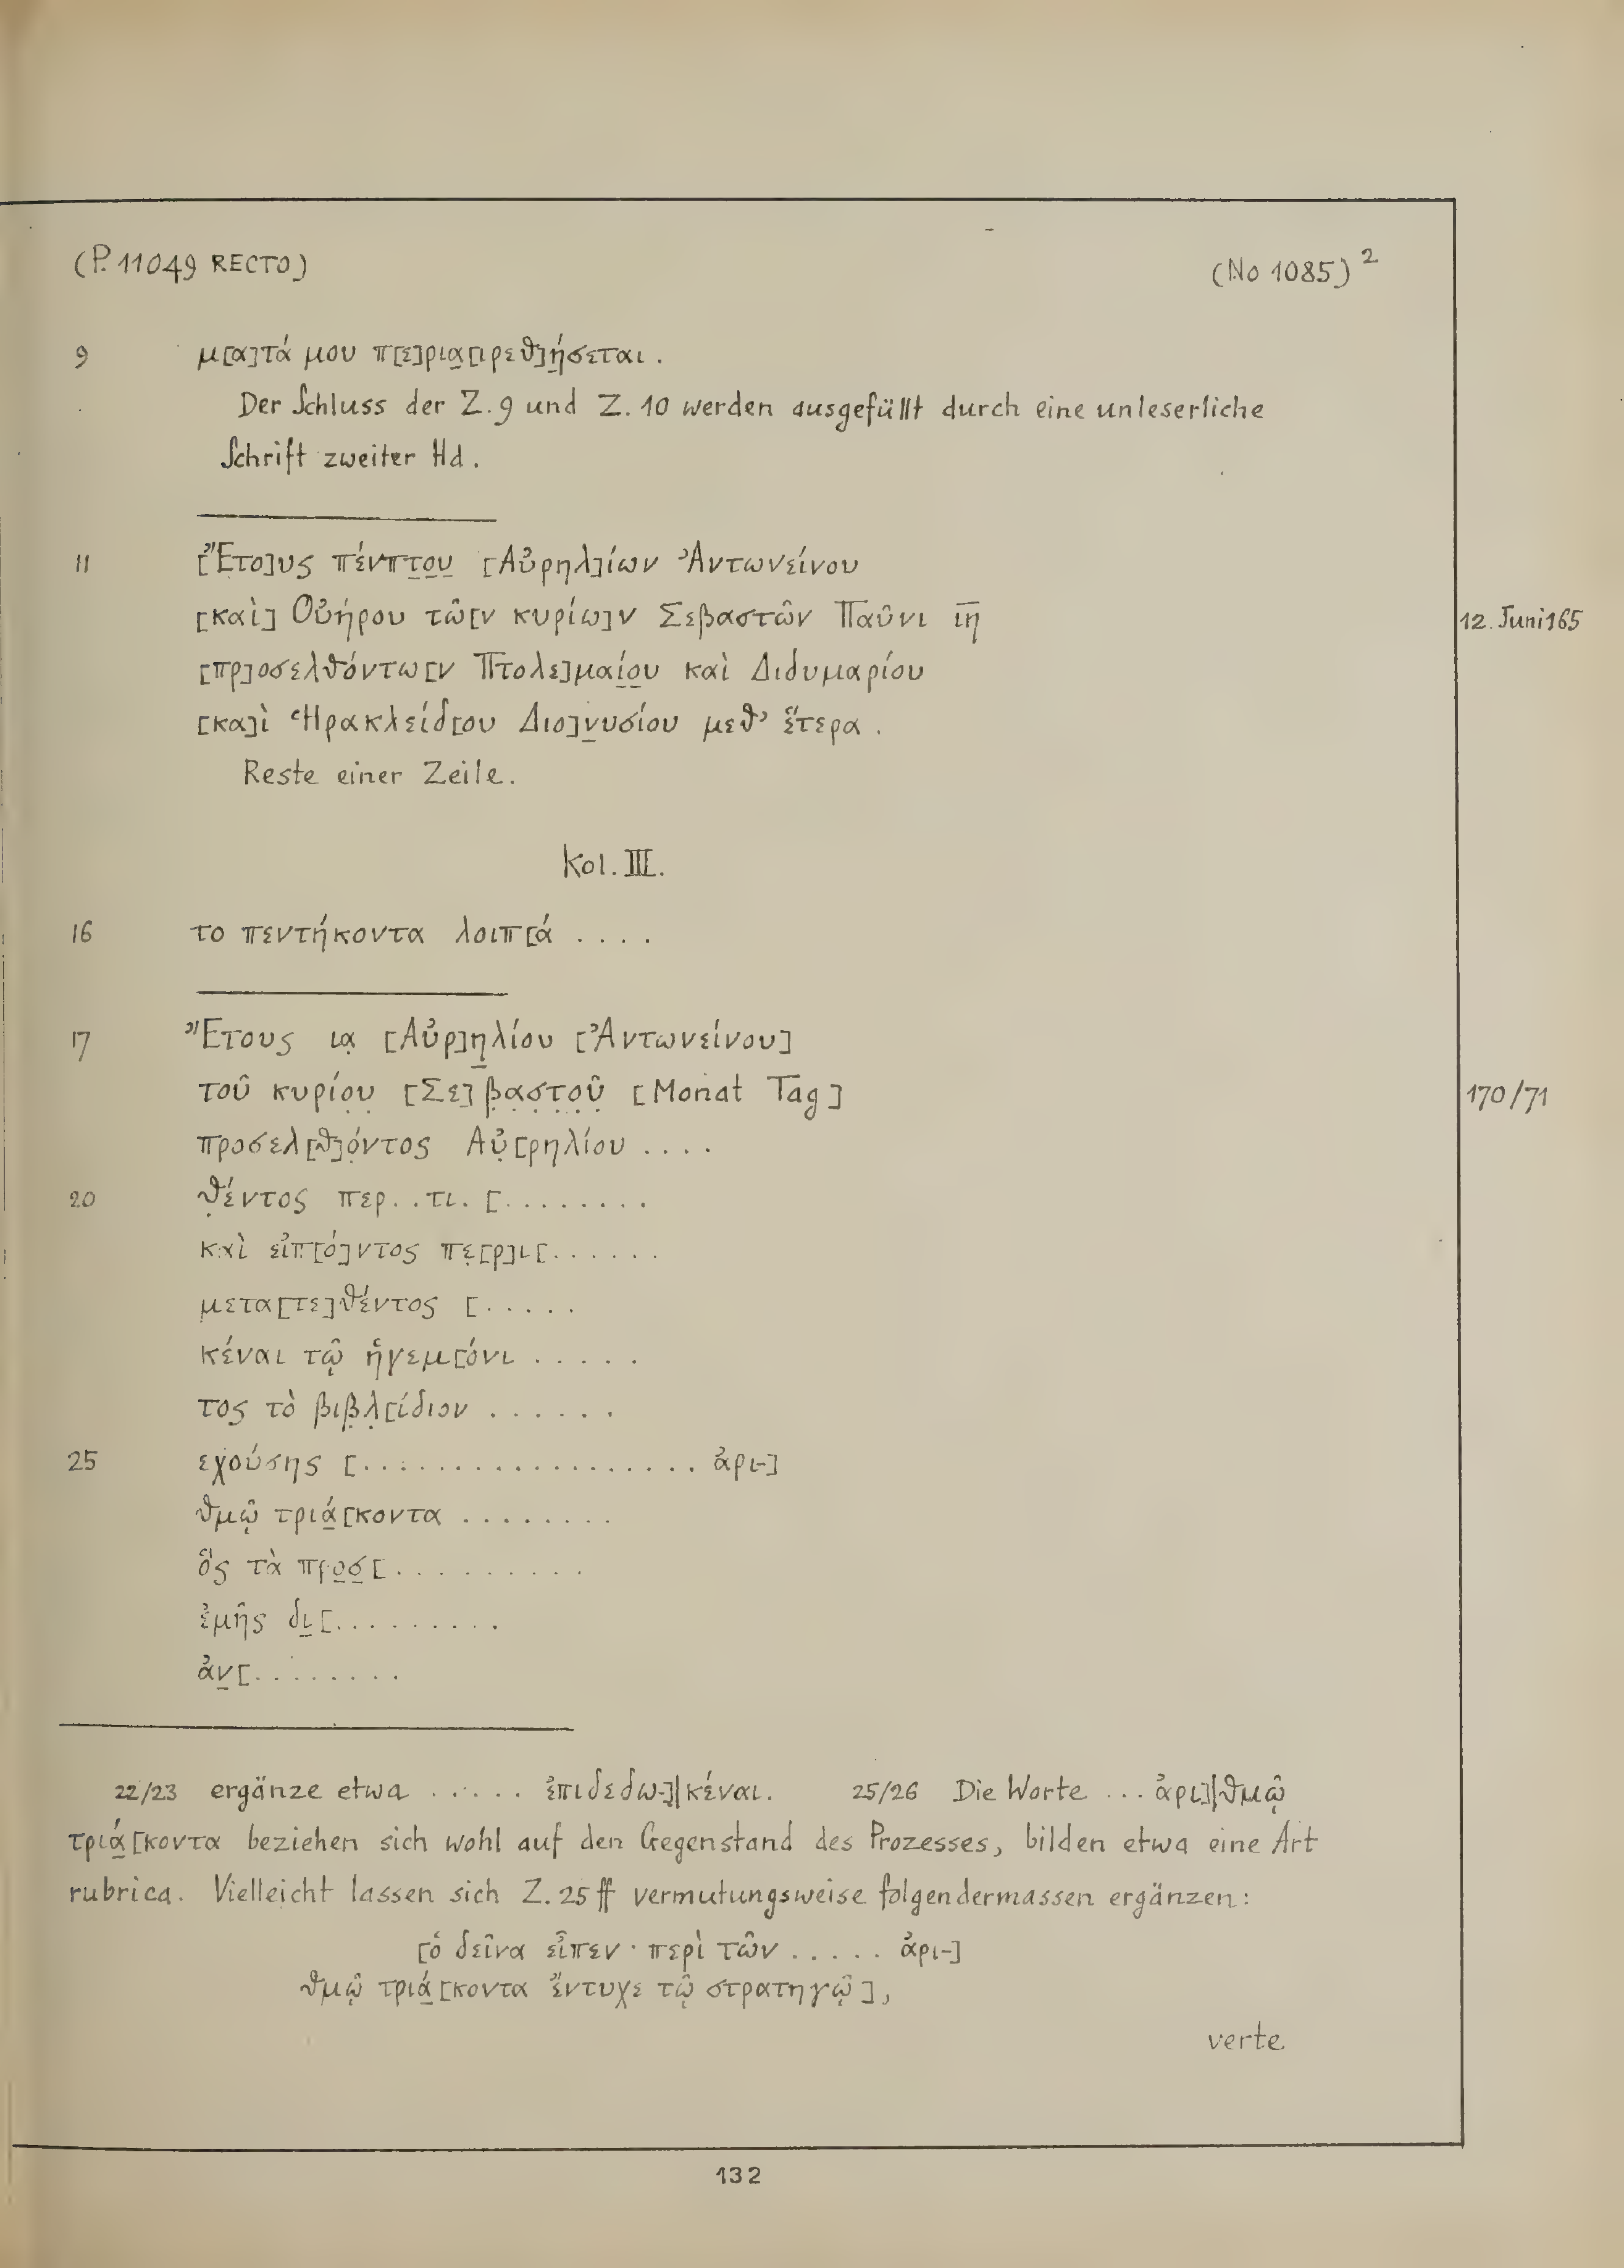 (P. 11049 RECTO) (No 1085) 2
9 μ[α]τά μου π[ε]ρια̣[ιρεθ]ή̣σεται .
Der Schluss der Z. 9 und Z. 10 werden ausgefüllt durch eine unleserliche
Schrift zweiter Hd.
11 [Ἔτο]υς πέν̣π̣τ̣ο̣υ̣ [Αὐρηλ]ίων Ἀντωνείνου
[καὶ] Οὐήρου τῶ[ν κυρίω]ν Σεβαστῶν Παῦνι ι̅η̅ 12. Juni 165
[πρ]οσελθόντω[ν Πτολε]μαί̣ο̣υ καὶ Διδυμαρίου
[κα]ὶ Ἡρακλείδ[ου Διο]ν̣υσίου μεθ' ἕτερα .
Reste einer Zeile.
Kol. III.
16 το πεντήκοντα λοιπ[ά . . . .
17 Ἔτους ια̣ [Αὐρ]η̣λίου [Ἀντωνείνου]
τοῦ κυρίο̣υ̣ [Σε]β̣α̣σ̣τ̣ο̣ῦ̣ [Monat Tag] 170/71
προσελ[θ]ό̣ντος Αὐ̣[ρηλίου . . . .
20 θ̣έντος περ. .τι. [. . . . . . . .
καὶ εἰπ[ό]ντος πε̣[ρ]ι[. . . . . .
μετα[τε]θέντος [. . . . .
κέναι τῷ ἡγεμ[όνι . . . . .
τος τὸ βιβ̣λ̣[ίδιον . . . . . .
25 εχούσης [. . . . . . . . . . . . . . . . . . ἀρι-]
θμῷ τριά̣[κοντα . . . . . . . .
ὅς τὰ προ̣σ̣[. . . . . . . . .
ἐμῆς δι̣[. . . . . . . . .
ἀν̣[. . . . . . . .
22/23 ergänze etwa . . . . . ἐπιδεδω-]|κέναι. 25/26 Die Worte ... ἀρι]|θμῷ
τριά̣[κοντα beziehen sich wohl auf den Gegenstand des Prozesses, bilden etwa eine Art
rubrica. Vielleicht lassen sich Z. 25 ff vermutungsweise folgendermassen ergänzen:
[ὁ δεῖνα εἶπεν · περὶ τῶν . . . . . ἀρι-]
θμῷ τριά̣[κοντα ἔντυχε τῷ στρατηγῷ],
verte
132